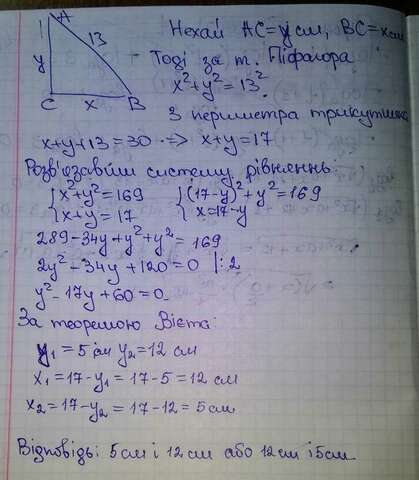 A
13
y
C x B
Нехай AC=y см, BC=x см
Тоді за т. Піфагора
x²+y²=13²
З периметра трикутника
x+y+13=30 => x+y=17
Розв'язавши систему рівнянь:
{x²+y²=169 {(17-y)²+y²=169
{x+y=17 {x=17-y
289-34y+y²+y²=169
2y²-34y+120=0 |:2
y²-17y+60=0
За теоремою Вієта:
y₁=5 см y₂=12 см
x₁=17-y₁=17-5=12 см
x₂=17-y₂=17-12=5 см
Відповідь: 5 см і 12 см або 12 см і 5 см